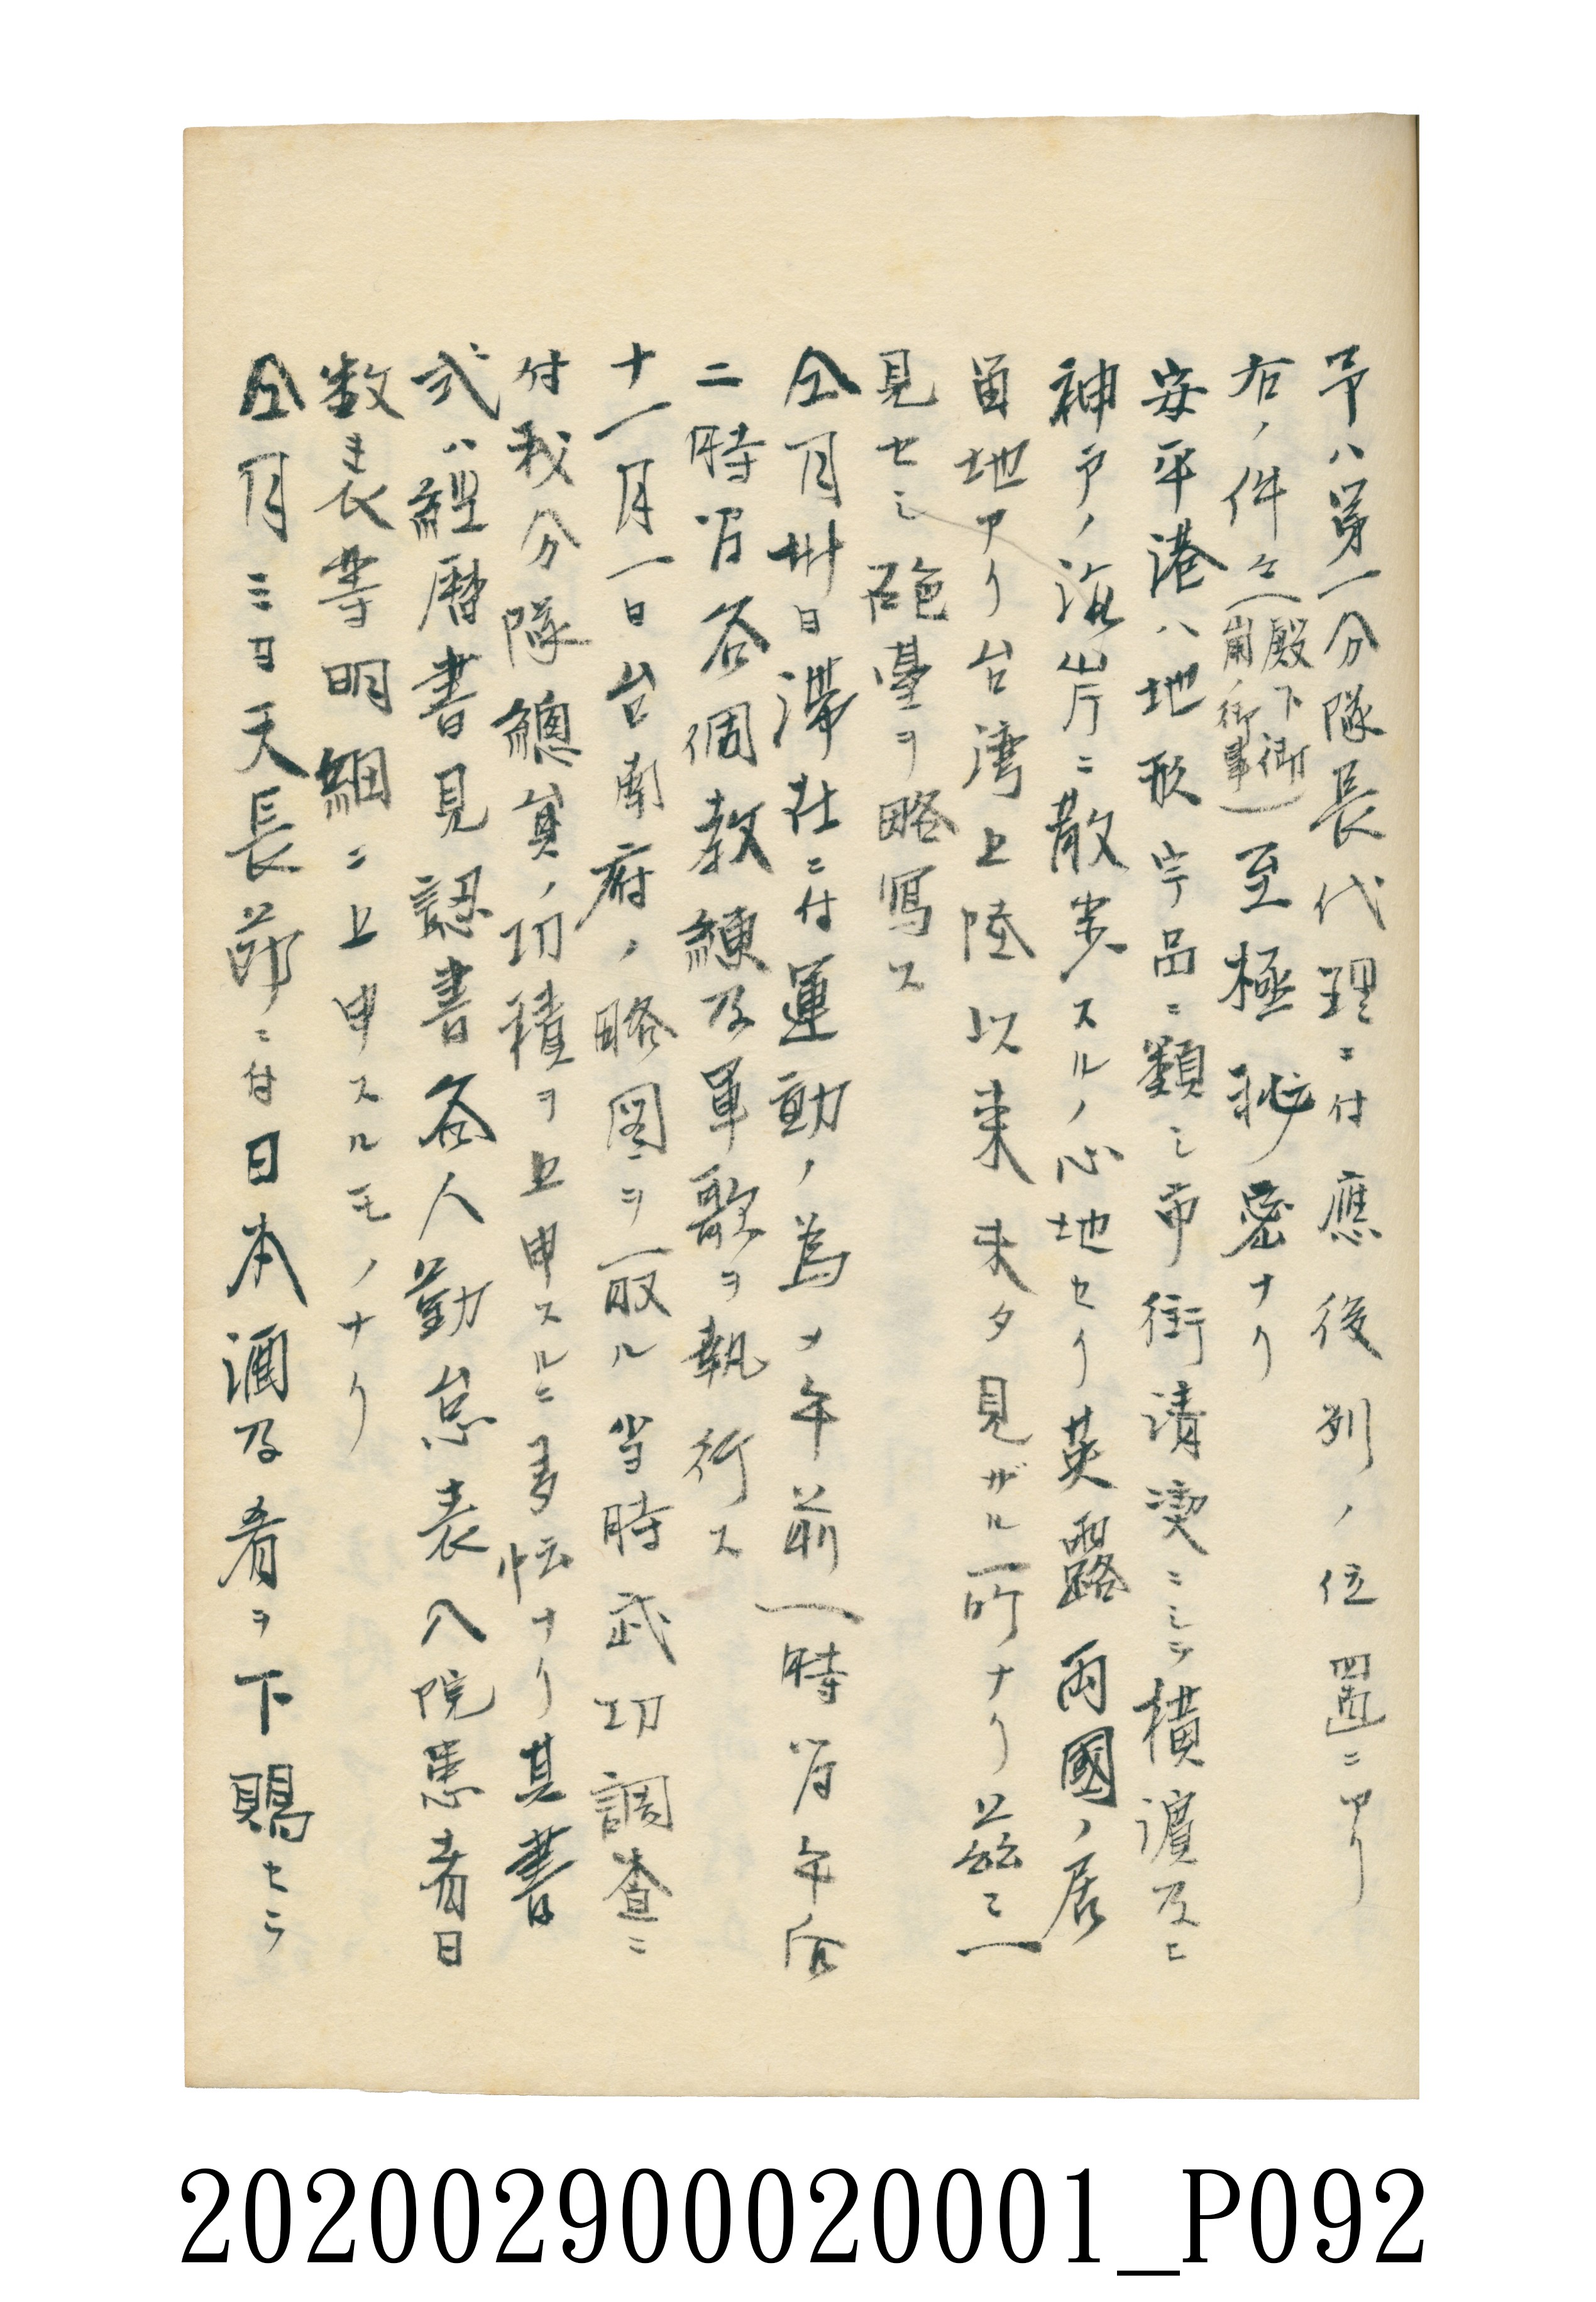 予ハ第一分隊長代理ニ付應後列ノ位置ニアリ
右ノ件々(殿下御崩御ノ事)至極秘密ナリ
安平港ハ地形宇品ニ類シ市街清潔ニシテ横濵及ヒ
神戸ノ海岸ニ散歩スルノ心地セリ英露両國ノ居
畄地アリ台湾上陸以来未タ見ザル所ナリ茲ニ一
見セシ砲臺ヲ略寫ス
仝月卅日滞在ニ付運動ノ為メ午前一時間午后
二時間各個教練及軍歌ヲ執行ス
十一月一日台南府ノ略図ヲ取ル当時武功調査ニ
付我分隊總員ノ功積ヲ上申スルニ多忙ナリ其書
式ハ經暦書見認書各人勤怠表入院患者日
数表等明細ニ上申スルモノナリ
仝月三日天長節ニ付日本酒及肴ヲ下賜セラ
202002900020001_P092